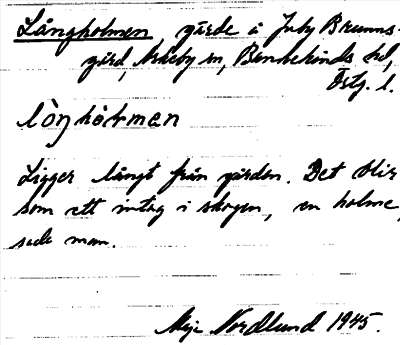 Långholmen, gärde å Juby Brunns-
gård, Askeby sn, Bankekinds hd,
Östg. l.
lòŋhòlman
Ligger långt från gården. Det blir
som ett intag i skogen, en holme,
sade man.
Maj Nordlund 1945.